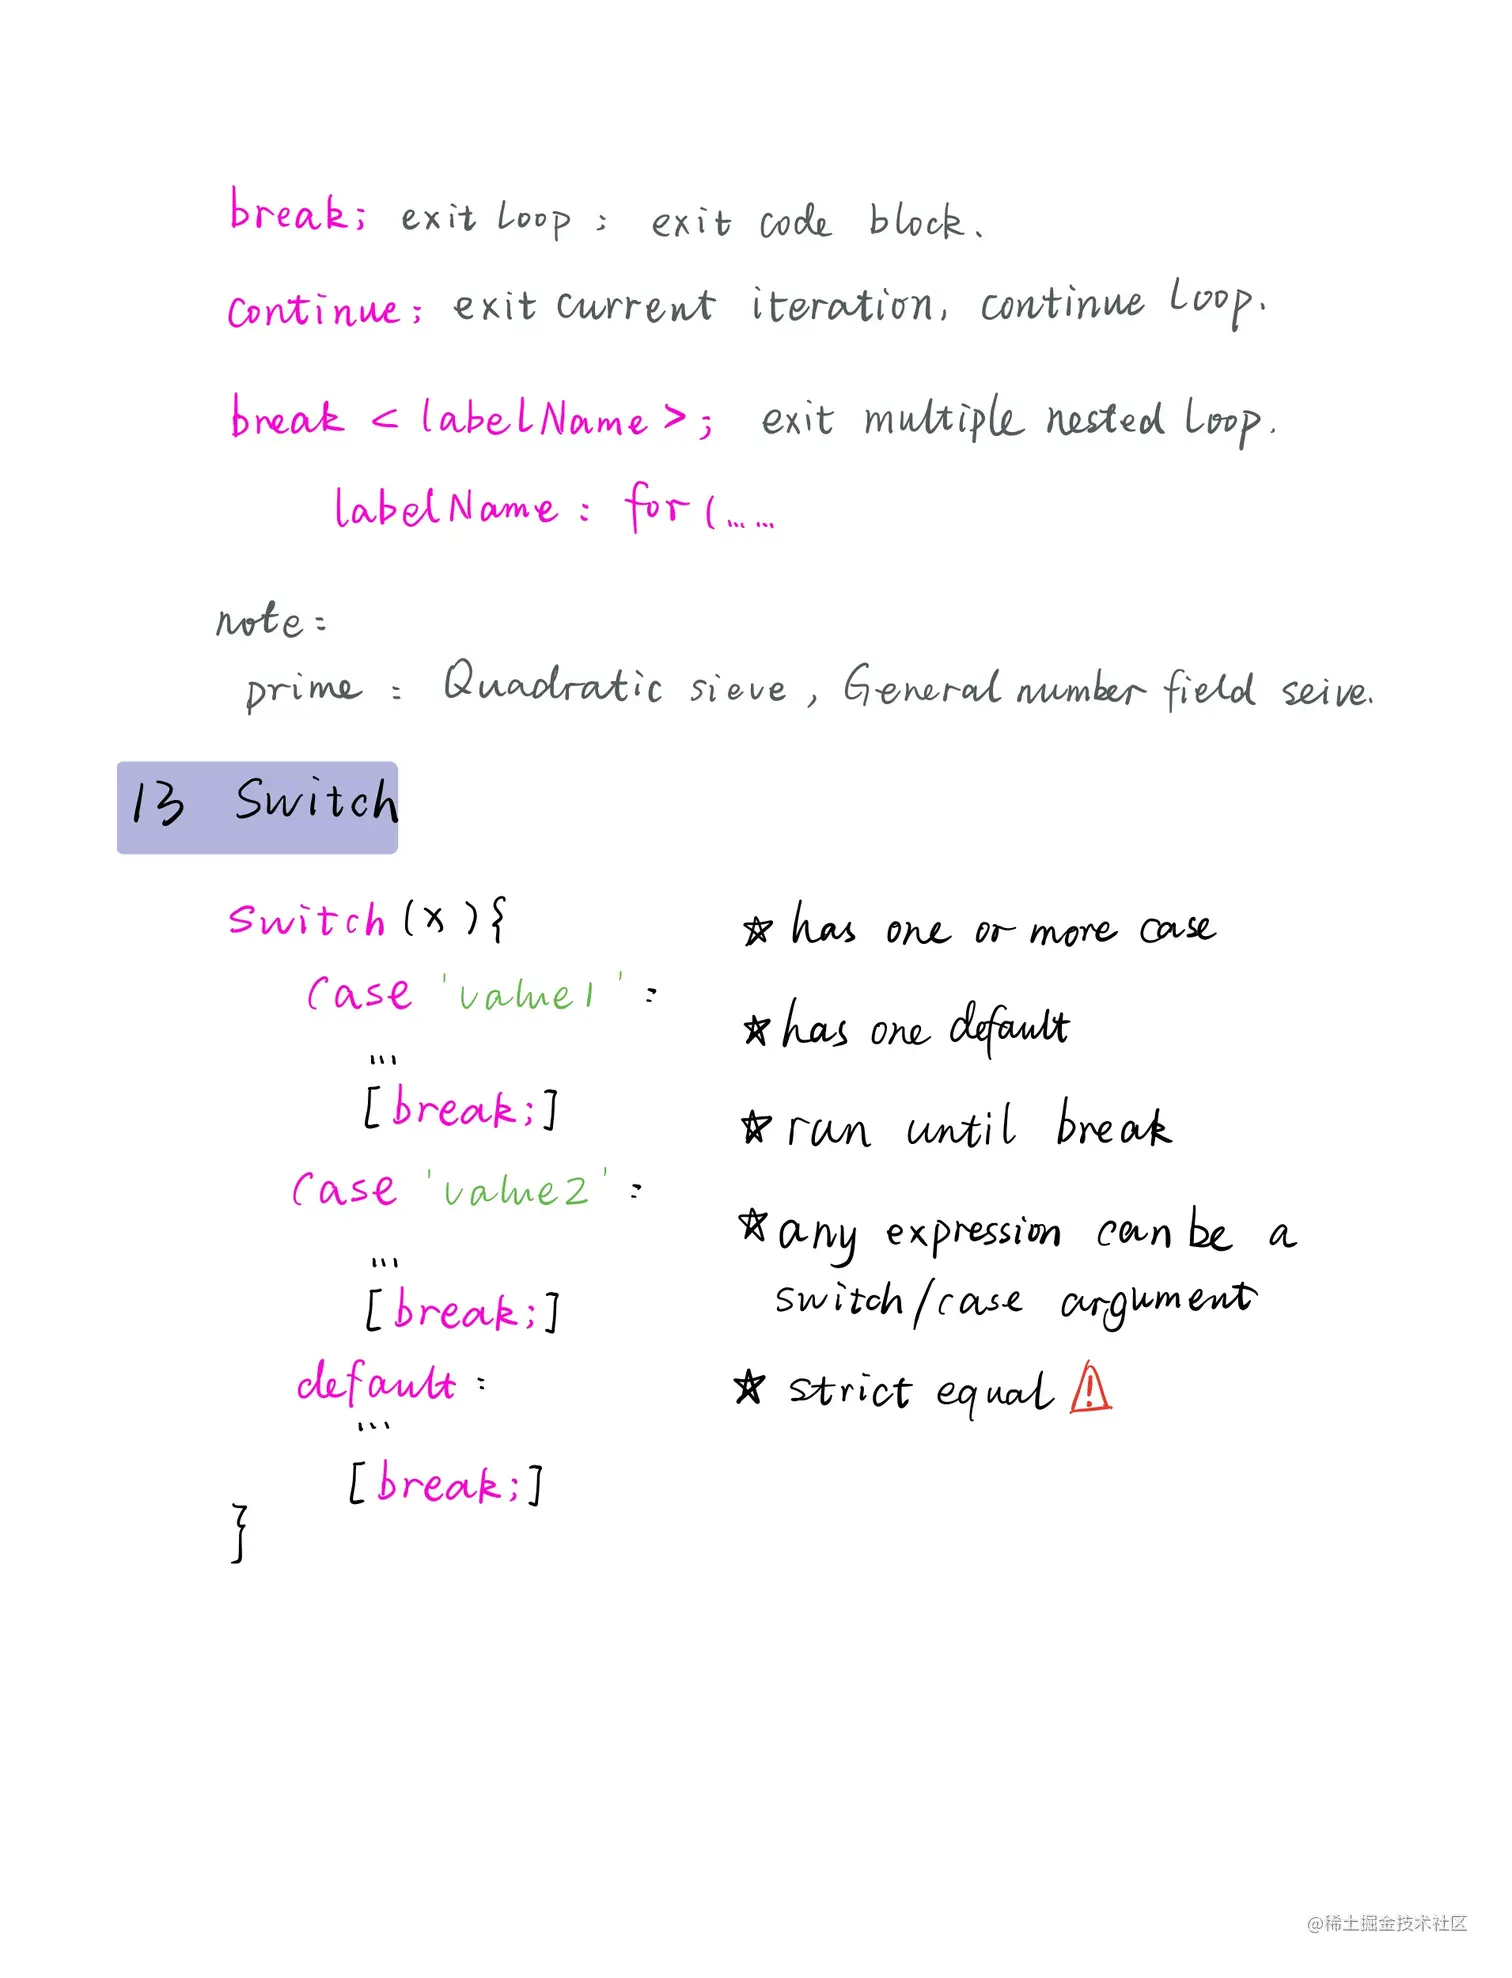 break; exit loop; exit code block.
continue; exit current iteration, continue loop.
break <labelName>; exit multiple nested loop.
labelName: for(... ...
note:
prime: Quadratic sieve, General number field seive.
13 Switch
switch(x){
case 'value1':
...
[break;]
case 'value2':
...
[break;]
default:
...
[break;]
}
☆ has one or more case
☆ has one default
☆ run until break
☆ any expression can be a
switch/case argument
☆ strict equal ⚠
@稀土掘金技术社区